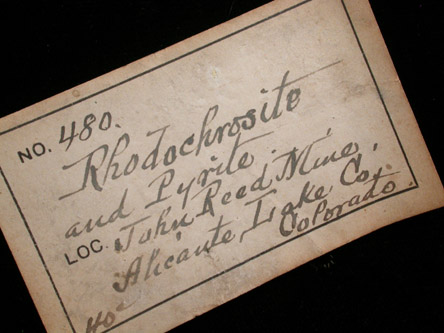 NO. 480.
Rhodochrosite
and Pyrite.
LOC. John Reed Mine,
Alicante, Lake Co,
Colorado.
40c